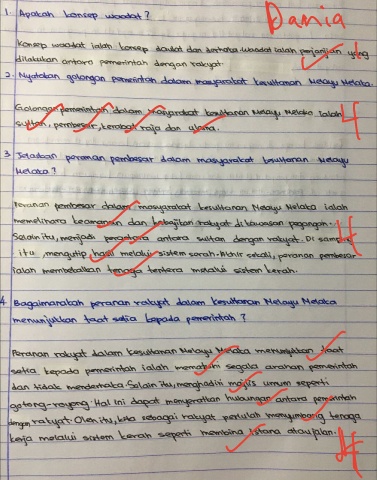 Dania
1. Apakah konsep waadat?
Konsep waadat ialah konsep daulat dan derhaka waadat ialah perjanjian yang
dilakukan antara pemerintah dengan rakyat.
2. Nyatakan golongan pemerintah dalam masyarakat kesultanan Melayu Melaka.
Golongan pemerintah dalam masyarakat kesultanan Melayu Melaka ialah
sultan, pembesar, kerabat raja dan ulama.
4
3. Jelaskan peranan pembesar dalam masyarakat kesultanan Melayu
Melaka?
Peranan pembesar dalam masyarakat kesultanan Melayu Melaka ialah
memelihara keamanan dan kebajikan rakyat di kawasan pegangan.
Selain itu, menjadi perantara antara sultan dengan rakyat. Di samping
itu, mengutip hasil melalui sistem serah. Akhir sekali, peranan pembesar
ialah membekalkan tenaga tentera melalui sistem kerah.
4
4. Bagaimanakah peranan rakyat dalam kesultanan Melayu Melaka
menunjukkan taat setia kepada pemerintah?
Peranan rakyat dalam kesultanan Melayu Melaka menunjukkan taat
setia kepada pemerintah ialah mematuhi segala arahan pemerintah
dan tidak menderhaka. Selain itu, menghadiri majlis umum seperti
gotong-royong. Hal ini dapat mengeratkan hubungan antara pemerintah
dengan rakyat. Oleh itu, kita sebagai rakyat perlulah menyumbang tenaga
kerja melalui sistem kerah seperti membina istana atau jalan.
4